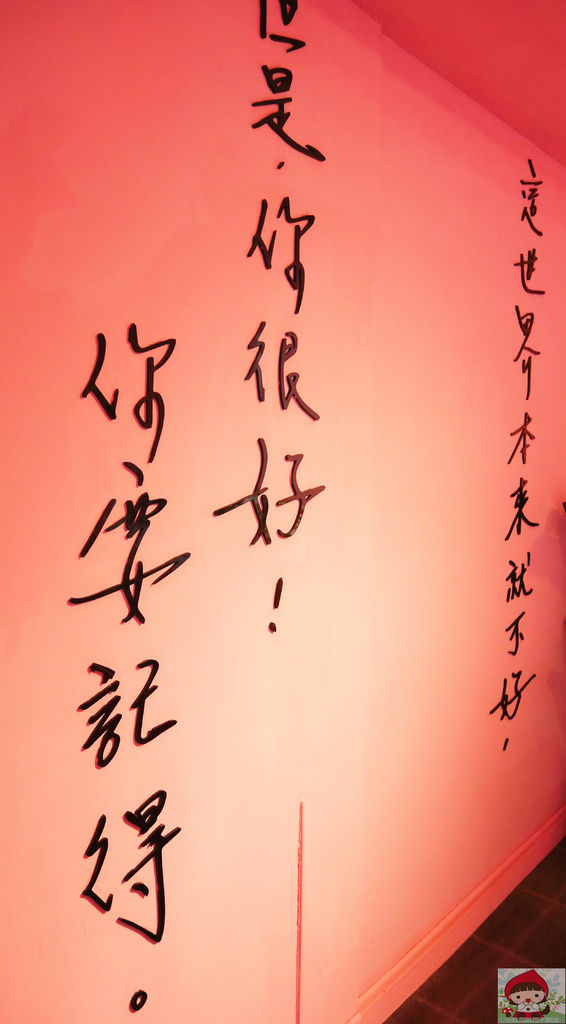 這世界本來就不好，
但是，你很好！
你要記得。